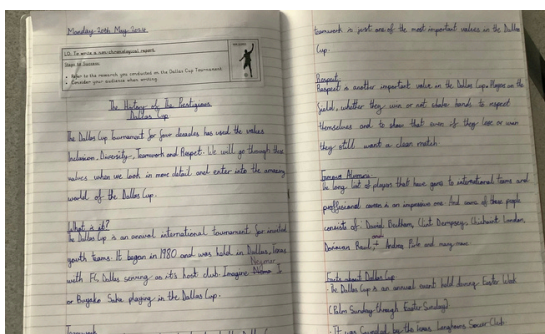 Monday 20th May 2024
LO: To write a non-chronological report
Steps to Success
Refer to the research you conducted on the Dallas Cup Tournament.
Consider your audience when writing.
The History of The Prestigious
Dallas Cup
The Dallas Cup tournament for four decades has used the values
Inclusion, Diversity, Teamwork and Respect. We will go through these
values when we look in more detail and enter into the amazing
world of the Dallas Cup.
What is it?
The Dallas Cup is an annual international tournament for invited
youth teams. It began in 1980 and was held in Dallas, Texas
with FC Dallas serving as its host club. Imagine
or Bukayo Saka playing in the Dallas Cup.
Teamwork
teamwork is just one of the most important values in the Dallas
Cup.
Respect
Respect is another important value in the Dallas Cup. Players on the
field, whether they win or not shake hands to respect
themselves and to show that even if they lose or win
they still want a clean match.
Famous Alumni
long list of players that have gone to international teams and
professional career is an impressive one. And some of these people
consists of: David Beckham, Clint Dempsey, Landon,
Raul, Andrea Pirlo and many more
Facts about Dallas Cup
The Dallas Cup is an annual event held during Easter Week
(Palm Sunday through Easter Sunday)
It was founded by the Texas Longhorns Soccer Club